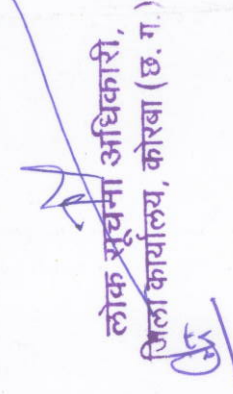 लोक सूचना अधिकारी,
जिला कार्यालय, कोरबा (छ. ग.)